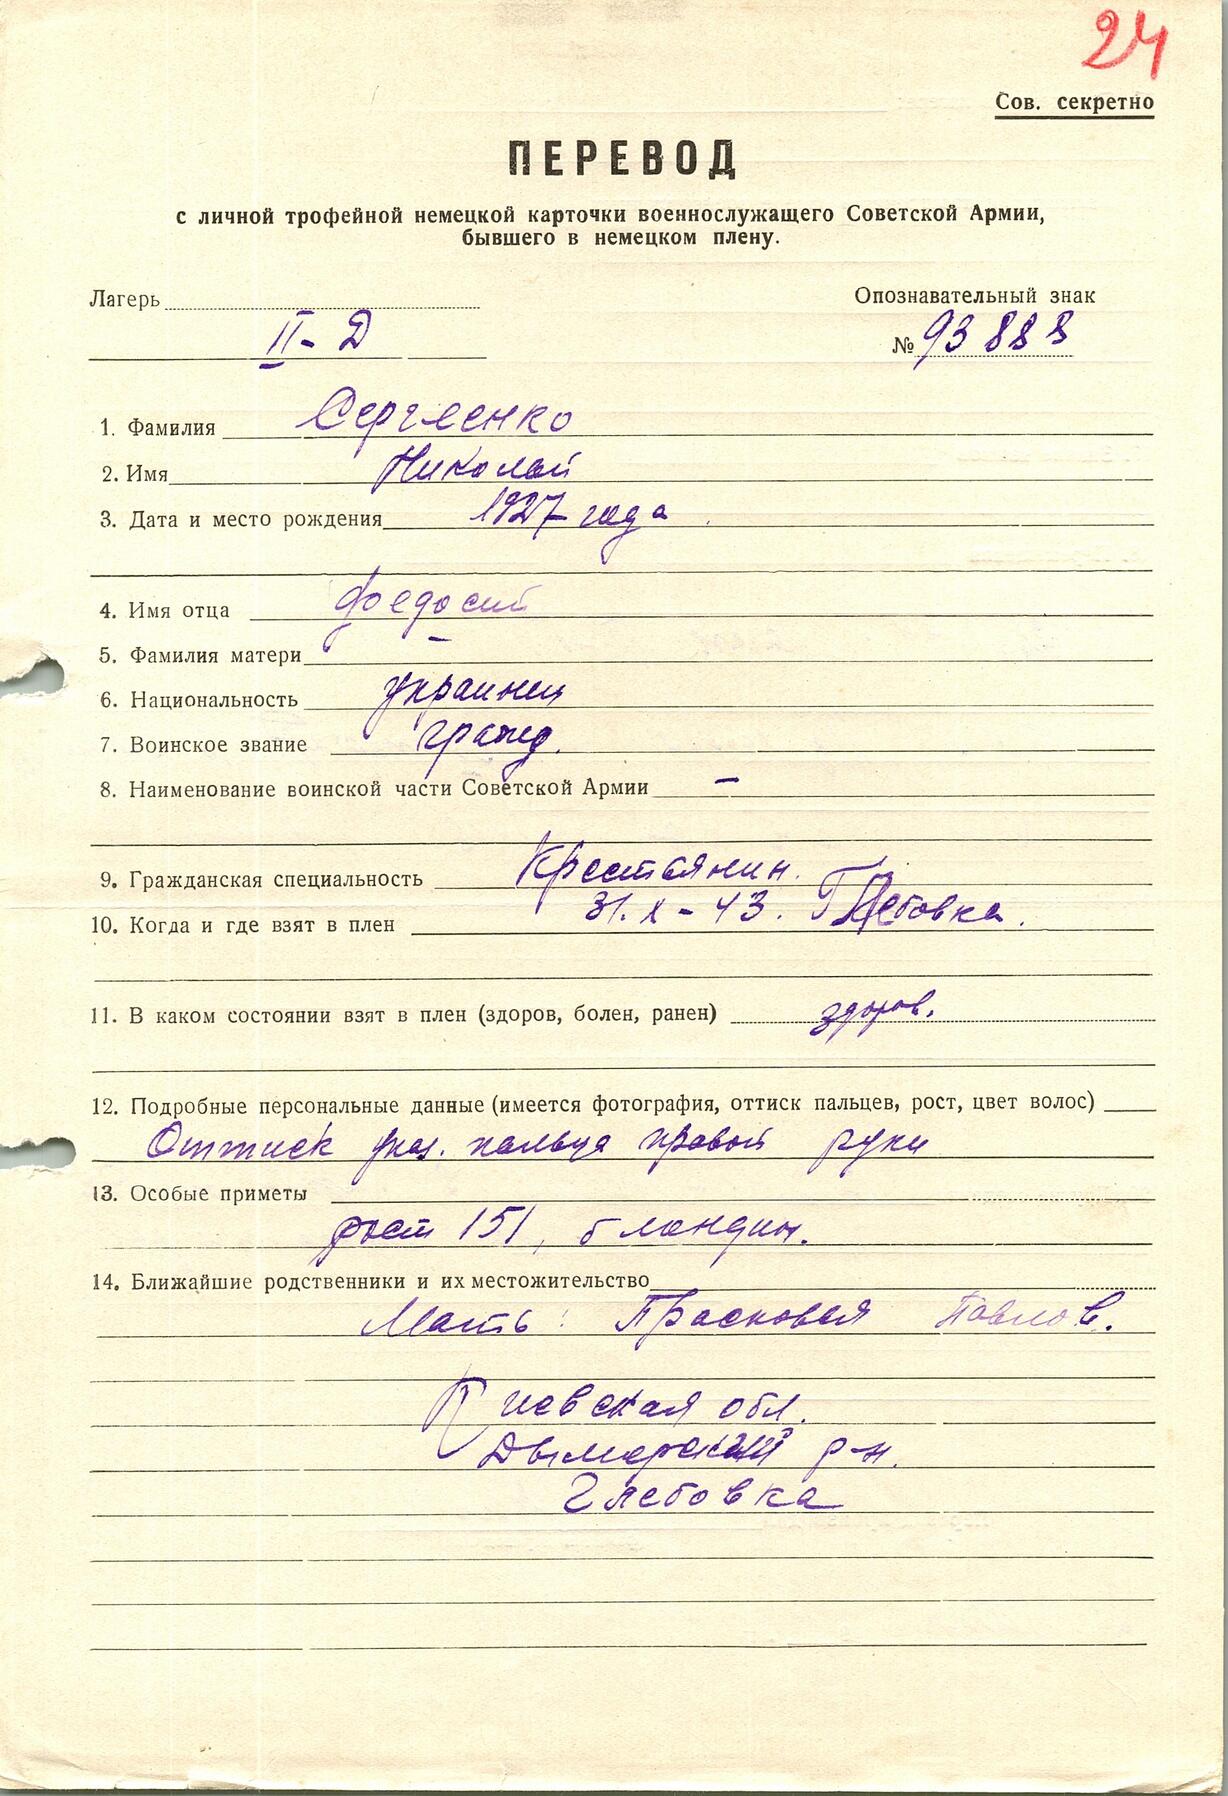 24
Сов. секретно
ПЕРЕВОД
с личной трофейной немецкой карточки военнослужащего Советской Армии,
бывшего в немецком плену.
Лагерь
Опознавательный знак
II - Д
№ 93888
1. Фамилия Сергиенко
2. Имя Николай
3. Дата и место рождения 1927 года
4. Имя отца Фоедосий
5. Фамилия матери –
6. Национальность украинец
7. Воинское звание гражд.
8. Наименование воинской части Советской Армии –
9. Гражданская специальность Крестьянин.
10. Когда и где взят в плен 31.X - 43. Глебовка.
11. В каком состоянии взят в плен (здоров, болен, ранен) здоров.
12. Подробные персональные данные (имеется фотография, оттиск пальцев, рост, цвет волос)
Оттиск указ. пальца правой руки
13. Особые приметы
рост 151, блондин.
14. Ближайшие родственники и их местожительство
Мать: Прасковья Павлов.
Киевская обл.
Дымерский р-н.
Глебовка